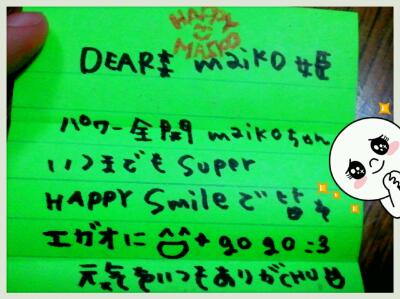 HAPPY
MAIKO
DEAR♥ maiKO姫
パワー全開 maikoちゃん
いつまでも Super
HAPPY Smile で 皆を
エガオに + go go =3
元気をいつもありがとCHU